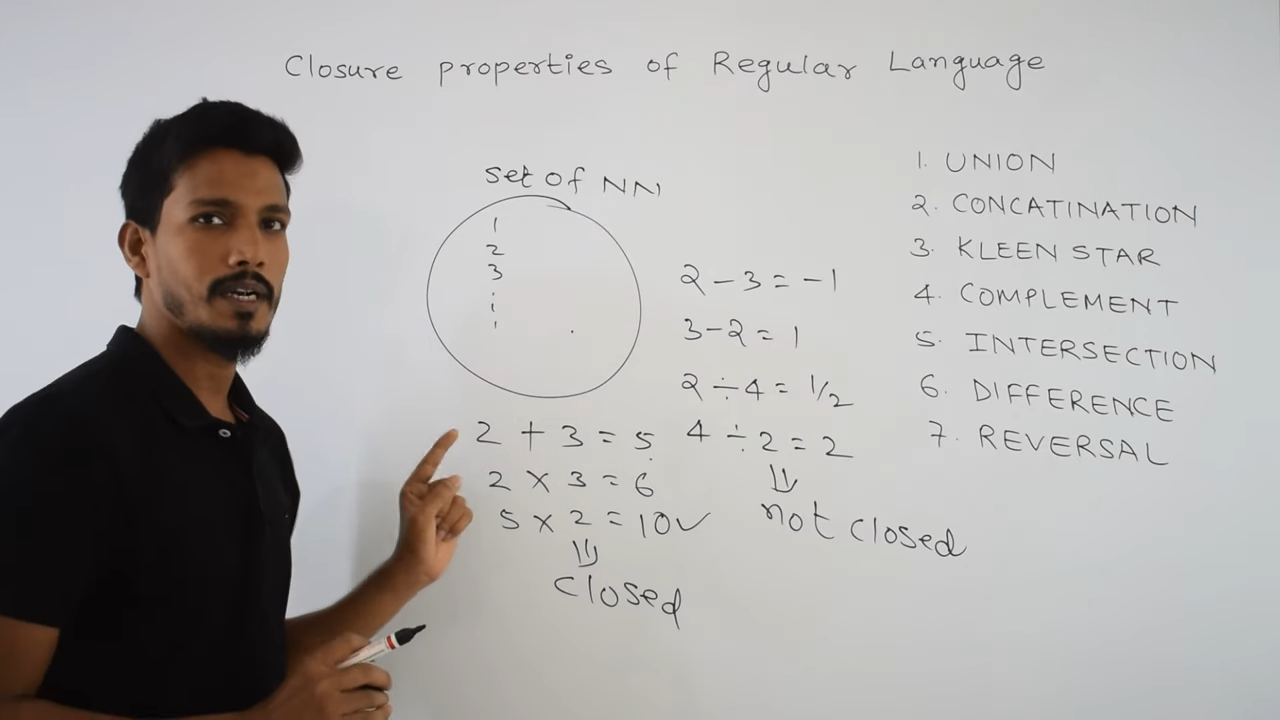 Closure properties of Regular Language
set of NN
1
2
3
2 - 3 = -1
3 - 2 = 1
2 ÷ 4 = 1/2
4 ÷ 2 = 2
not closed
2 + 3 = 5
2 × 3 = 6
5 × 2 = 10✓
closed
1. UNION
2. CONCATINATION
3. KLEEN STAR
4. COMPLEMENT
5. INTERSECTION
6. DIFFERENCE
7. REVERSAL